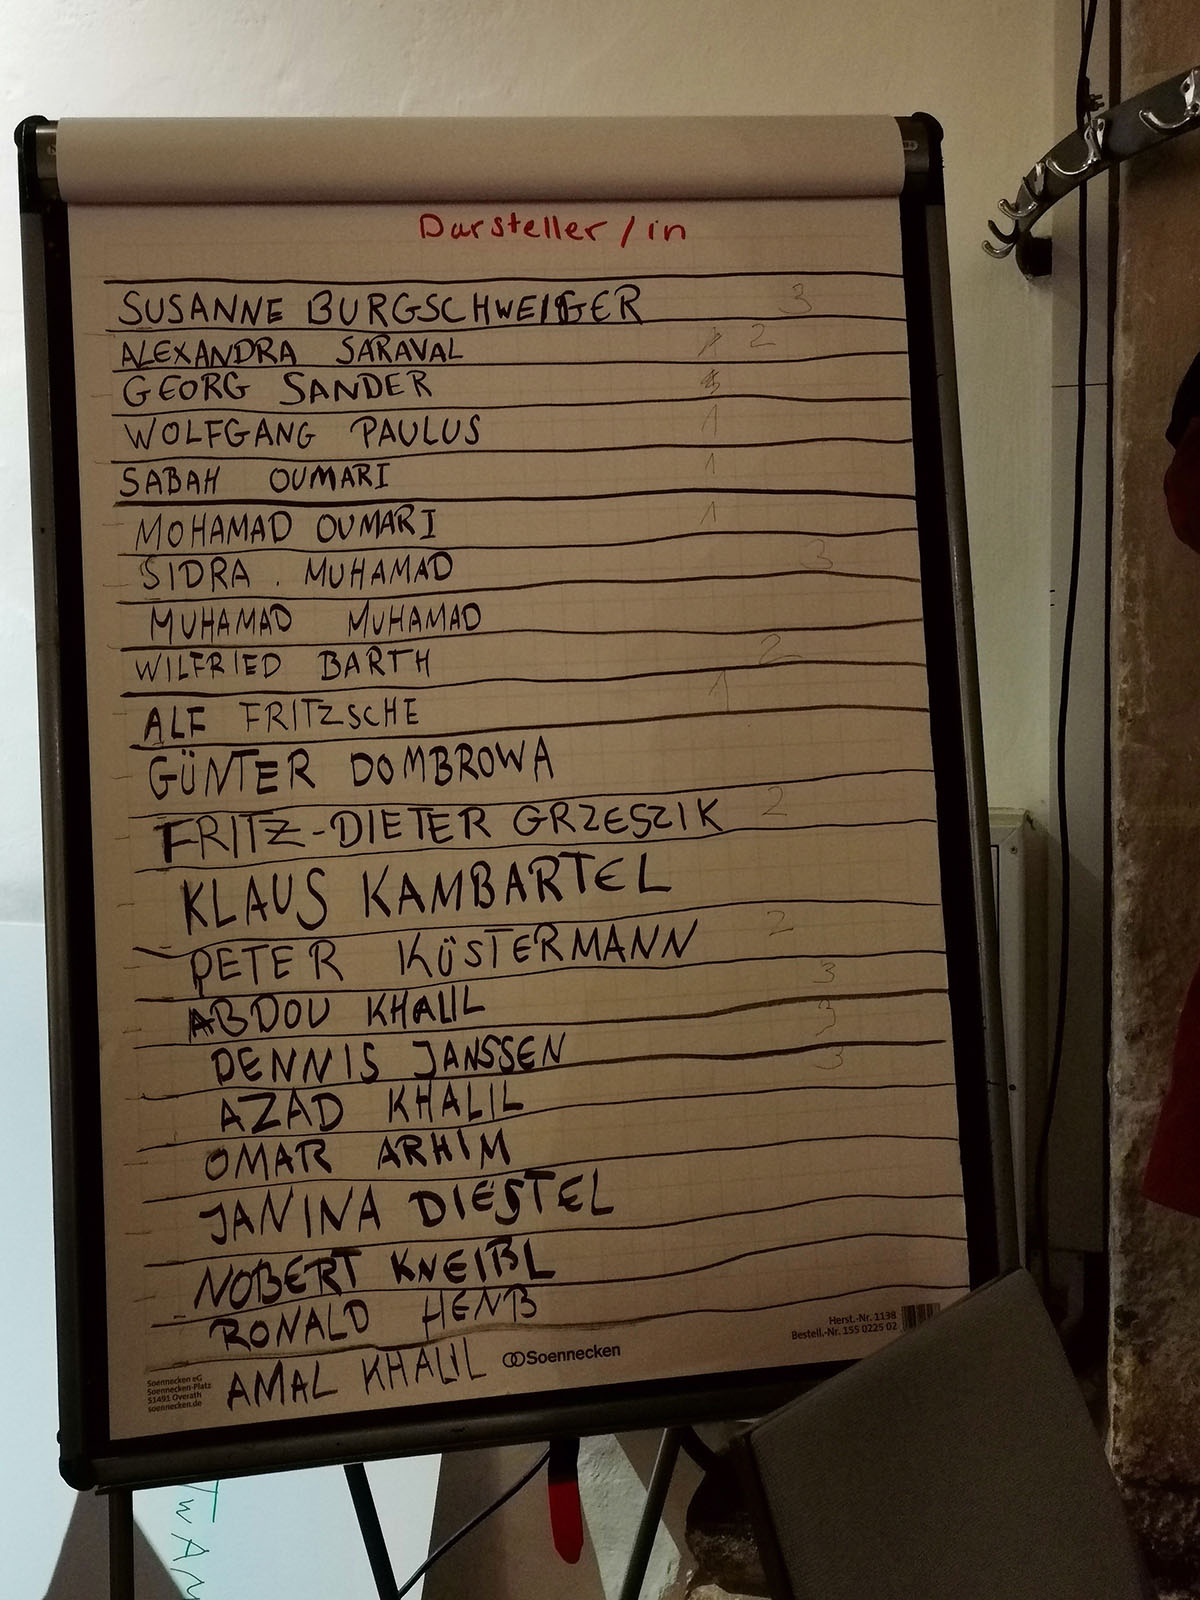 Darsteller/in
SUSANNE BURGSCHWEIGER 3
ALEXANDRA SARAVAL 2
GEORG SANDER
WOLFGANG PAULUS 1
SABAH OUMARI 1
MOHAMAD OUMARI 1
SIDRA . MUHAMAD 3
MUHAMAD MUHAMAD
WILFRIED BARTH 2
ALF FRITZSCHE 1
GÜNTER DOMBROWA
FRITZ-DIETER GRZESZIK 2
KLAUS KAMBARTEL
PETER KÜSTERMANN 2
ABDOU KHALIL 3
DENNIS JANSSEN 3
AZAD KHALIL 3
OMAR ARHIM
JANINA DIESTEL
NOBERT KNEIBL
RONALD HENB
AMAL KHALIL
Soennecken
Herst.-Nr. 1138
Bestell.-Nr. 155 0225 02
Soennecken eG
Soennecken-Platz
51491 Overath
soennecken.de